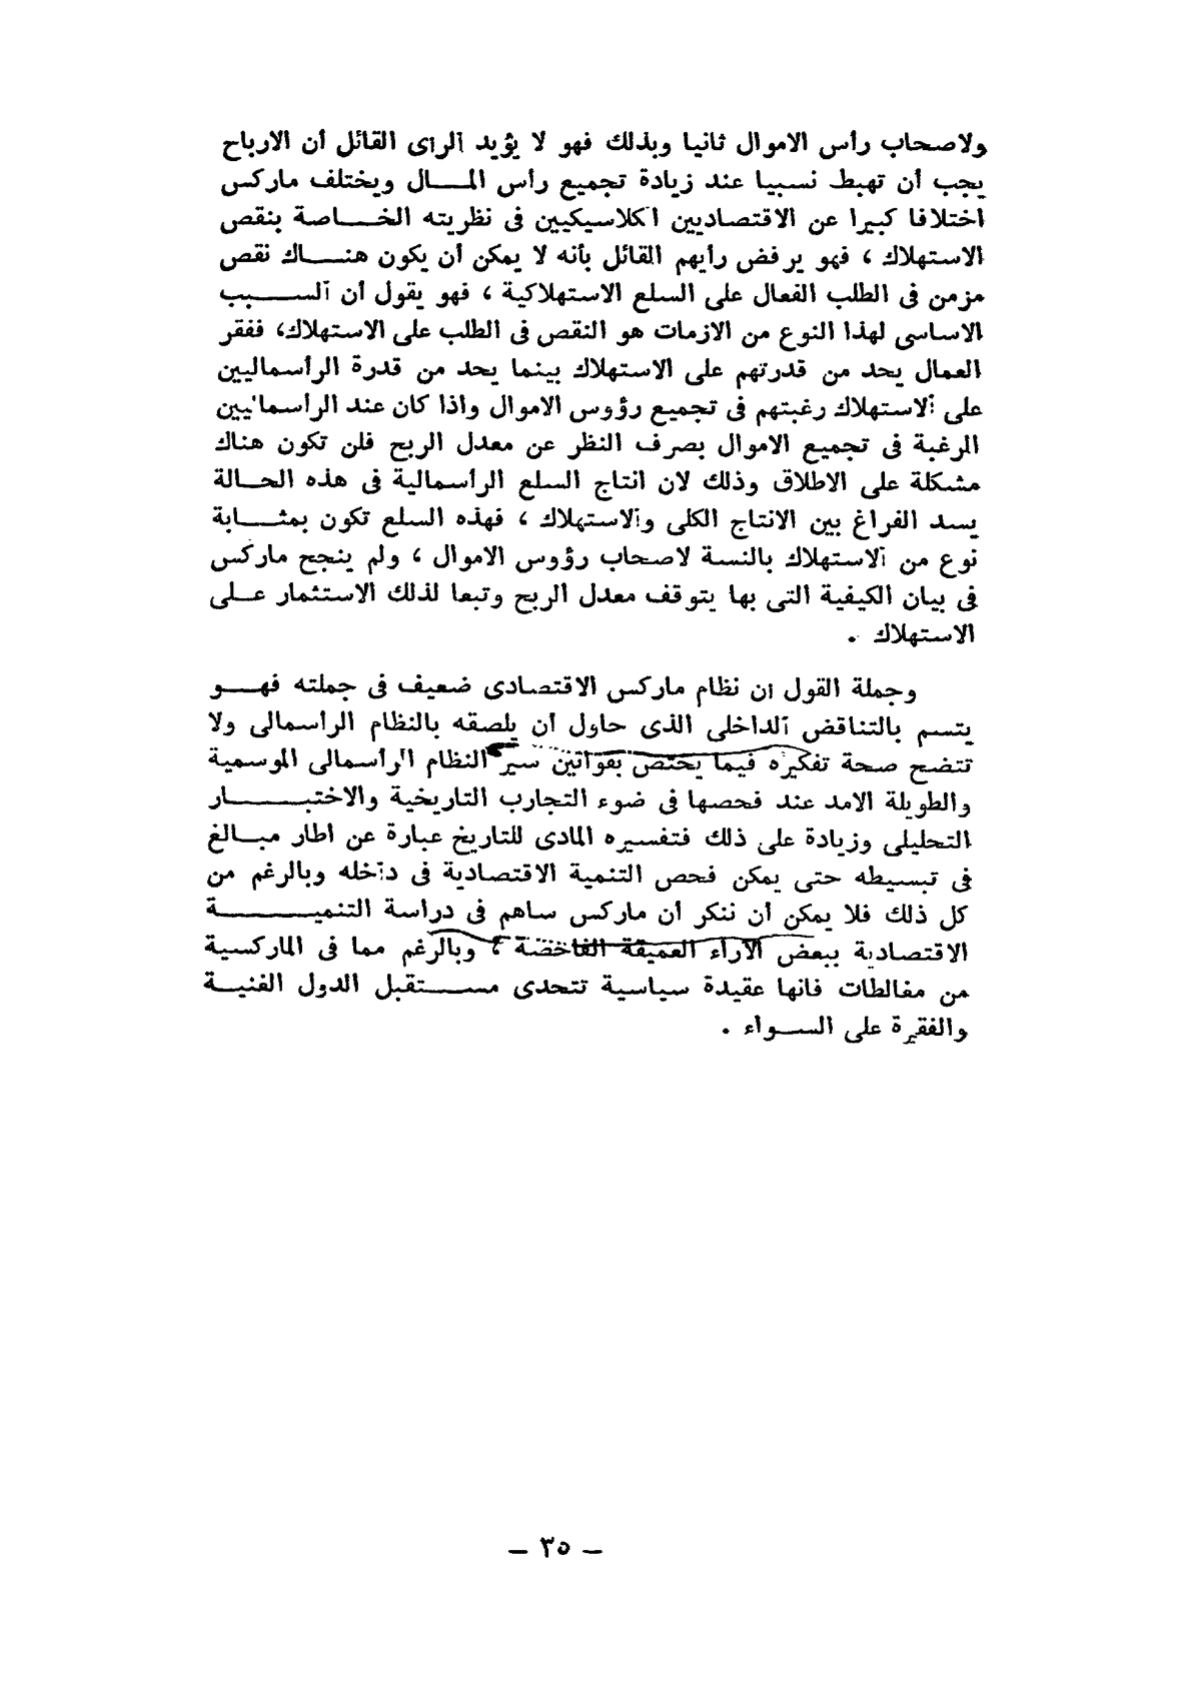 ولاصحاب رأس الاموال ثانيا وبذلك فهو لا يؤيد الرأى القائل أن الارباح
يجب أن تهبط نسبيا عند زيادة تجميع رأس المـــال ويختلف ماركس
اختلافا كبيرا عن الاقتصاديين الكلاسيكيين فى نظريته الخـــاصة بنقص
الاستهلاك ، فهو يرفض رأيهم القائل بأنه لا يمكن أن يكون هنـــاك نقص
مزمن فى الطلب الفعال على السلع الاستهلاكية ، فهو يقول أن الســـبب
الاساسى لهذا النوع من الازمات هو النقص فى الطلب على الاستهلاك، ففقر
العمال يحد من قدرتهم على الاستهلاك بينما يحد من قدرة الرأسماليين
على الاستهلاك رغبتهم فى تجميع رؤوس الاموال واذا كان عند الرأسماليين
الرغبة فى تجميع الاموال بصرف النظر عن معدل الربح فلن تكون هناك
مشكلة على الاطلاق وذلك لان انتاج السلع الرأسمالية فى هذه الحـــالة
يسد الفراغ بين الانتاج الكلى والاستهلاك ، فهذه السلع تكون بمثـــابة
نوع من الاستهلاك بالنسة لاصحاب رؤوس الاموال ، ولم ينجح ماركس
فى بيان الكيفية التى بها يتوقف معدل الربح وتبعا لذلك الاستثمار عــلى
الاستهلاك .
وجملة القول ان نظام ماركس الاقتصادى ضعيف فى جملته فهـــو
يتسم بالتناقض الداخلى الذى حاول أن يلصقه بالنظام الرأسمالى ولا
تتضح صحة تفكيره فيما يختص بقوانين سير النظام الرأسمالى الموسمية
والطويلة الامد عند فحصها فى ضوء التجارب التاريخية والاختبـــار
التحليلى وزيادة على ذلك فتفسيره المادى للتاريخ عبارة عن اطار مبـــالغ
فى تبسيطه حتى يمكن فحص التنمية الاقتصادية فى داخله وبالرغم من
كل ذلك فلا يمكن أن ننكر أن ماركس ساهم فى دراسة التنميـــة
الاقتصادية ببعض الآراء العميقة الفاحصة ، وبالرغم مما فى الماركسية
من مغالطات فانها عقيدة سياسية تتحدى مســـتقبل الدول الغنيـــة
والفقيرة على الســـواء .
– ٣٥ –